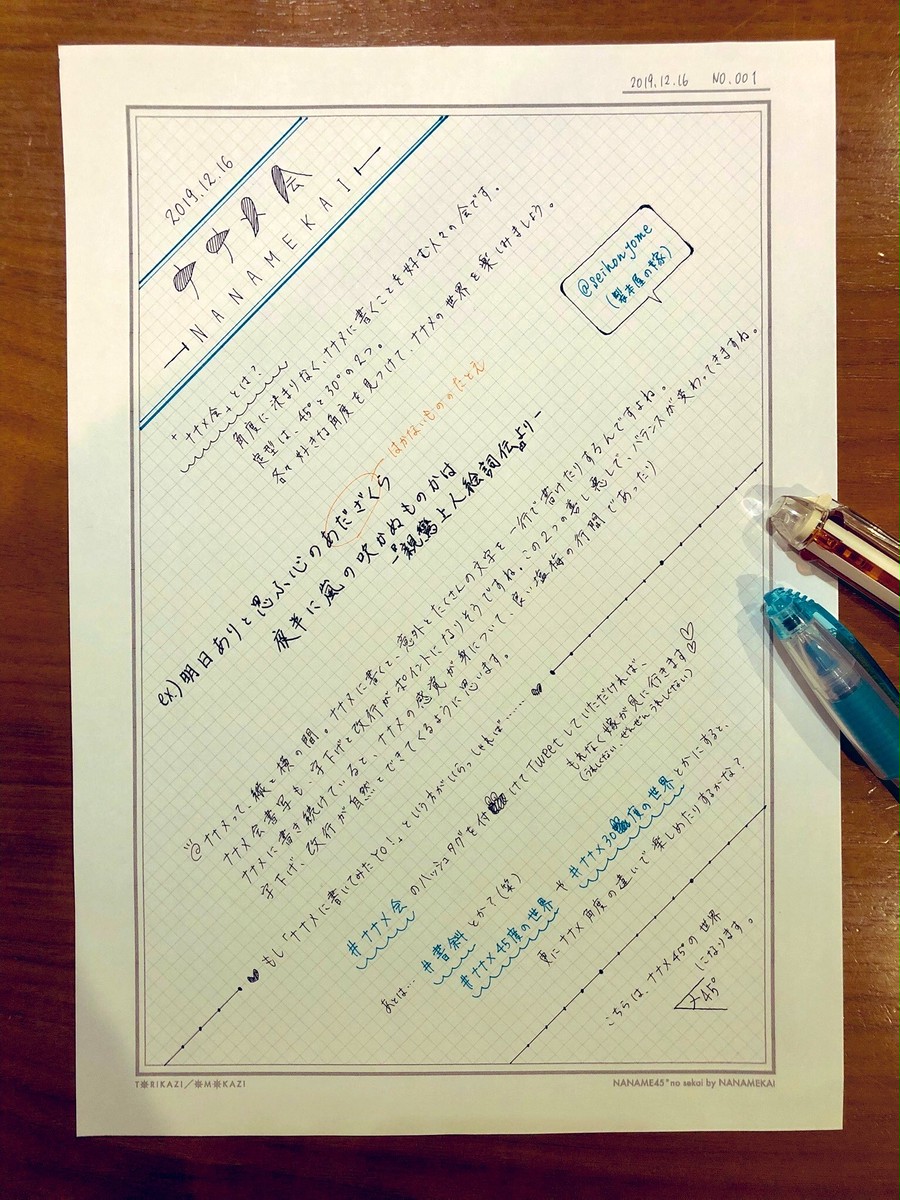 2019.12.16 NO.001
2019.12.16
ナナメ会
NANAMEKAI
@seihonyome
(製本屋の嫁)
「ナナメ会」とは?
角度に決まりなく、ナナメに書くことを好む人々の会です。
定型は、45°と30°の2つ。
各々好きな角度を見つけて、ナナメの世界を楽しみましょう。
はかないもののたとえ
ex.)明日ありと思ふ心のあだざくら
夜半に嵐の吹かぬものかは
-『親鸞上人絵詞伝』より-
@ナナメって、縦と横の間。ナナメに書くと、意外とたくさんの文字を一行で書けたりするんですよね。
ナナメ会書写も、字下げと改行がポイントになりそうですね。この2つの善し悪しで、バランスが変わってきますね。
ナナメに書き続けていると、ナナメの感覚が身について、良い塩梅の行間であったり
字下げ、改行が自然とできてくるように思います。
もし「ナナメに書いてみたYO!」という方がいらっしゃれば……
#ナナメ会のハッシュタグを付けてTweetしていただければ、
もれなく嫁が見に行きます♡♡
(うれしくない、ぜんぜんうれしくない)
あとは… #書斜 とか?(笑)
#ナナメ45度の世界 や #ナナメ30度の世界 とかにすると、
更にナナメ角度の違いで楽しめたりするかな?
こちらは、ナナメ45°の世界
になります。
45°
TORIKAZI/OMOKAZI
NANAME45°no sekai by NANAMEKAI